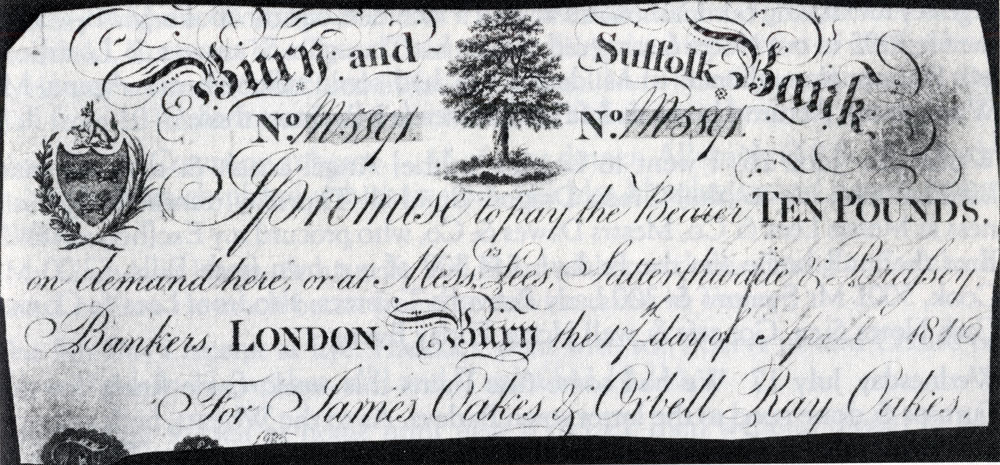 Bury and Suffolk Bank
No. M5891 No. M5891
I Promise to pay the Bearer TEN POUNDS,
on demand here, or at Messrs. Lees, Satterthwaite & Brassey,
Bankers, LONDON. Bury the 17 day of April 1816
For James Oakes & Orbell Ray Oakes,